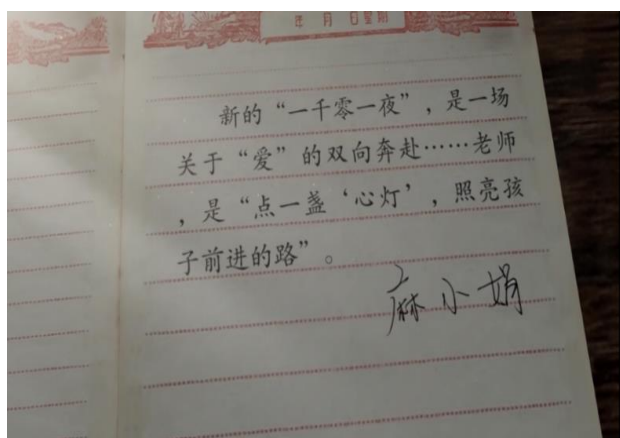 年 月 日星期
新的“一千零一夜”，是一场
关于“爱”的双向奔赴……老师
，是“点一盏‘心灯’，照亮孩
子前进的路”。
麻小娟